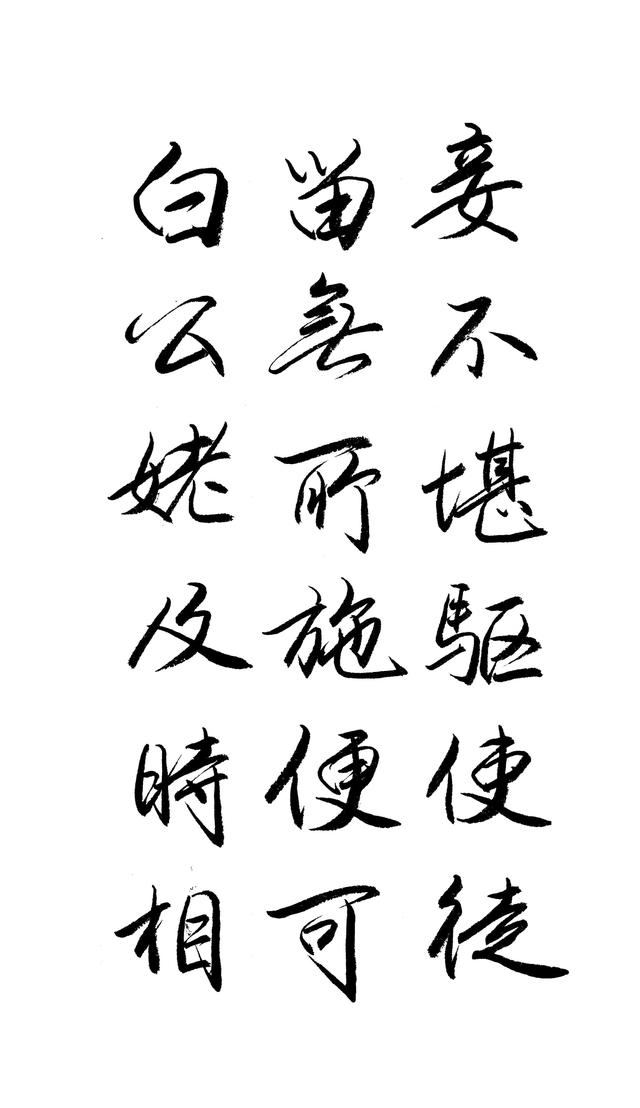 妾不堪驅使徒
留無所施便可
白公姥及時相